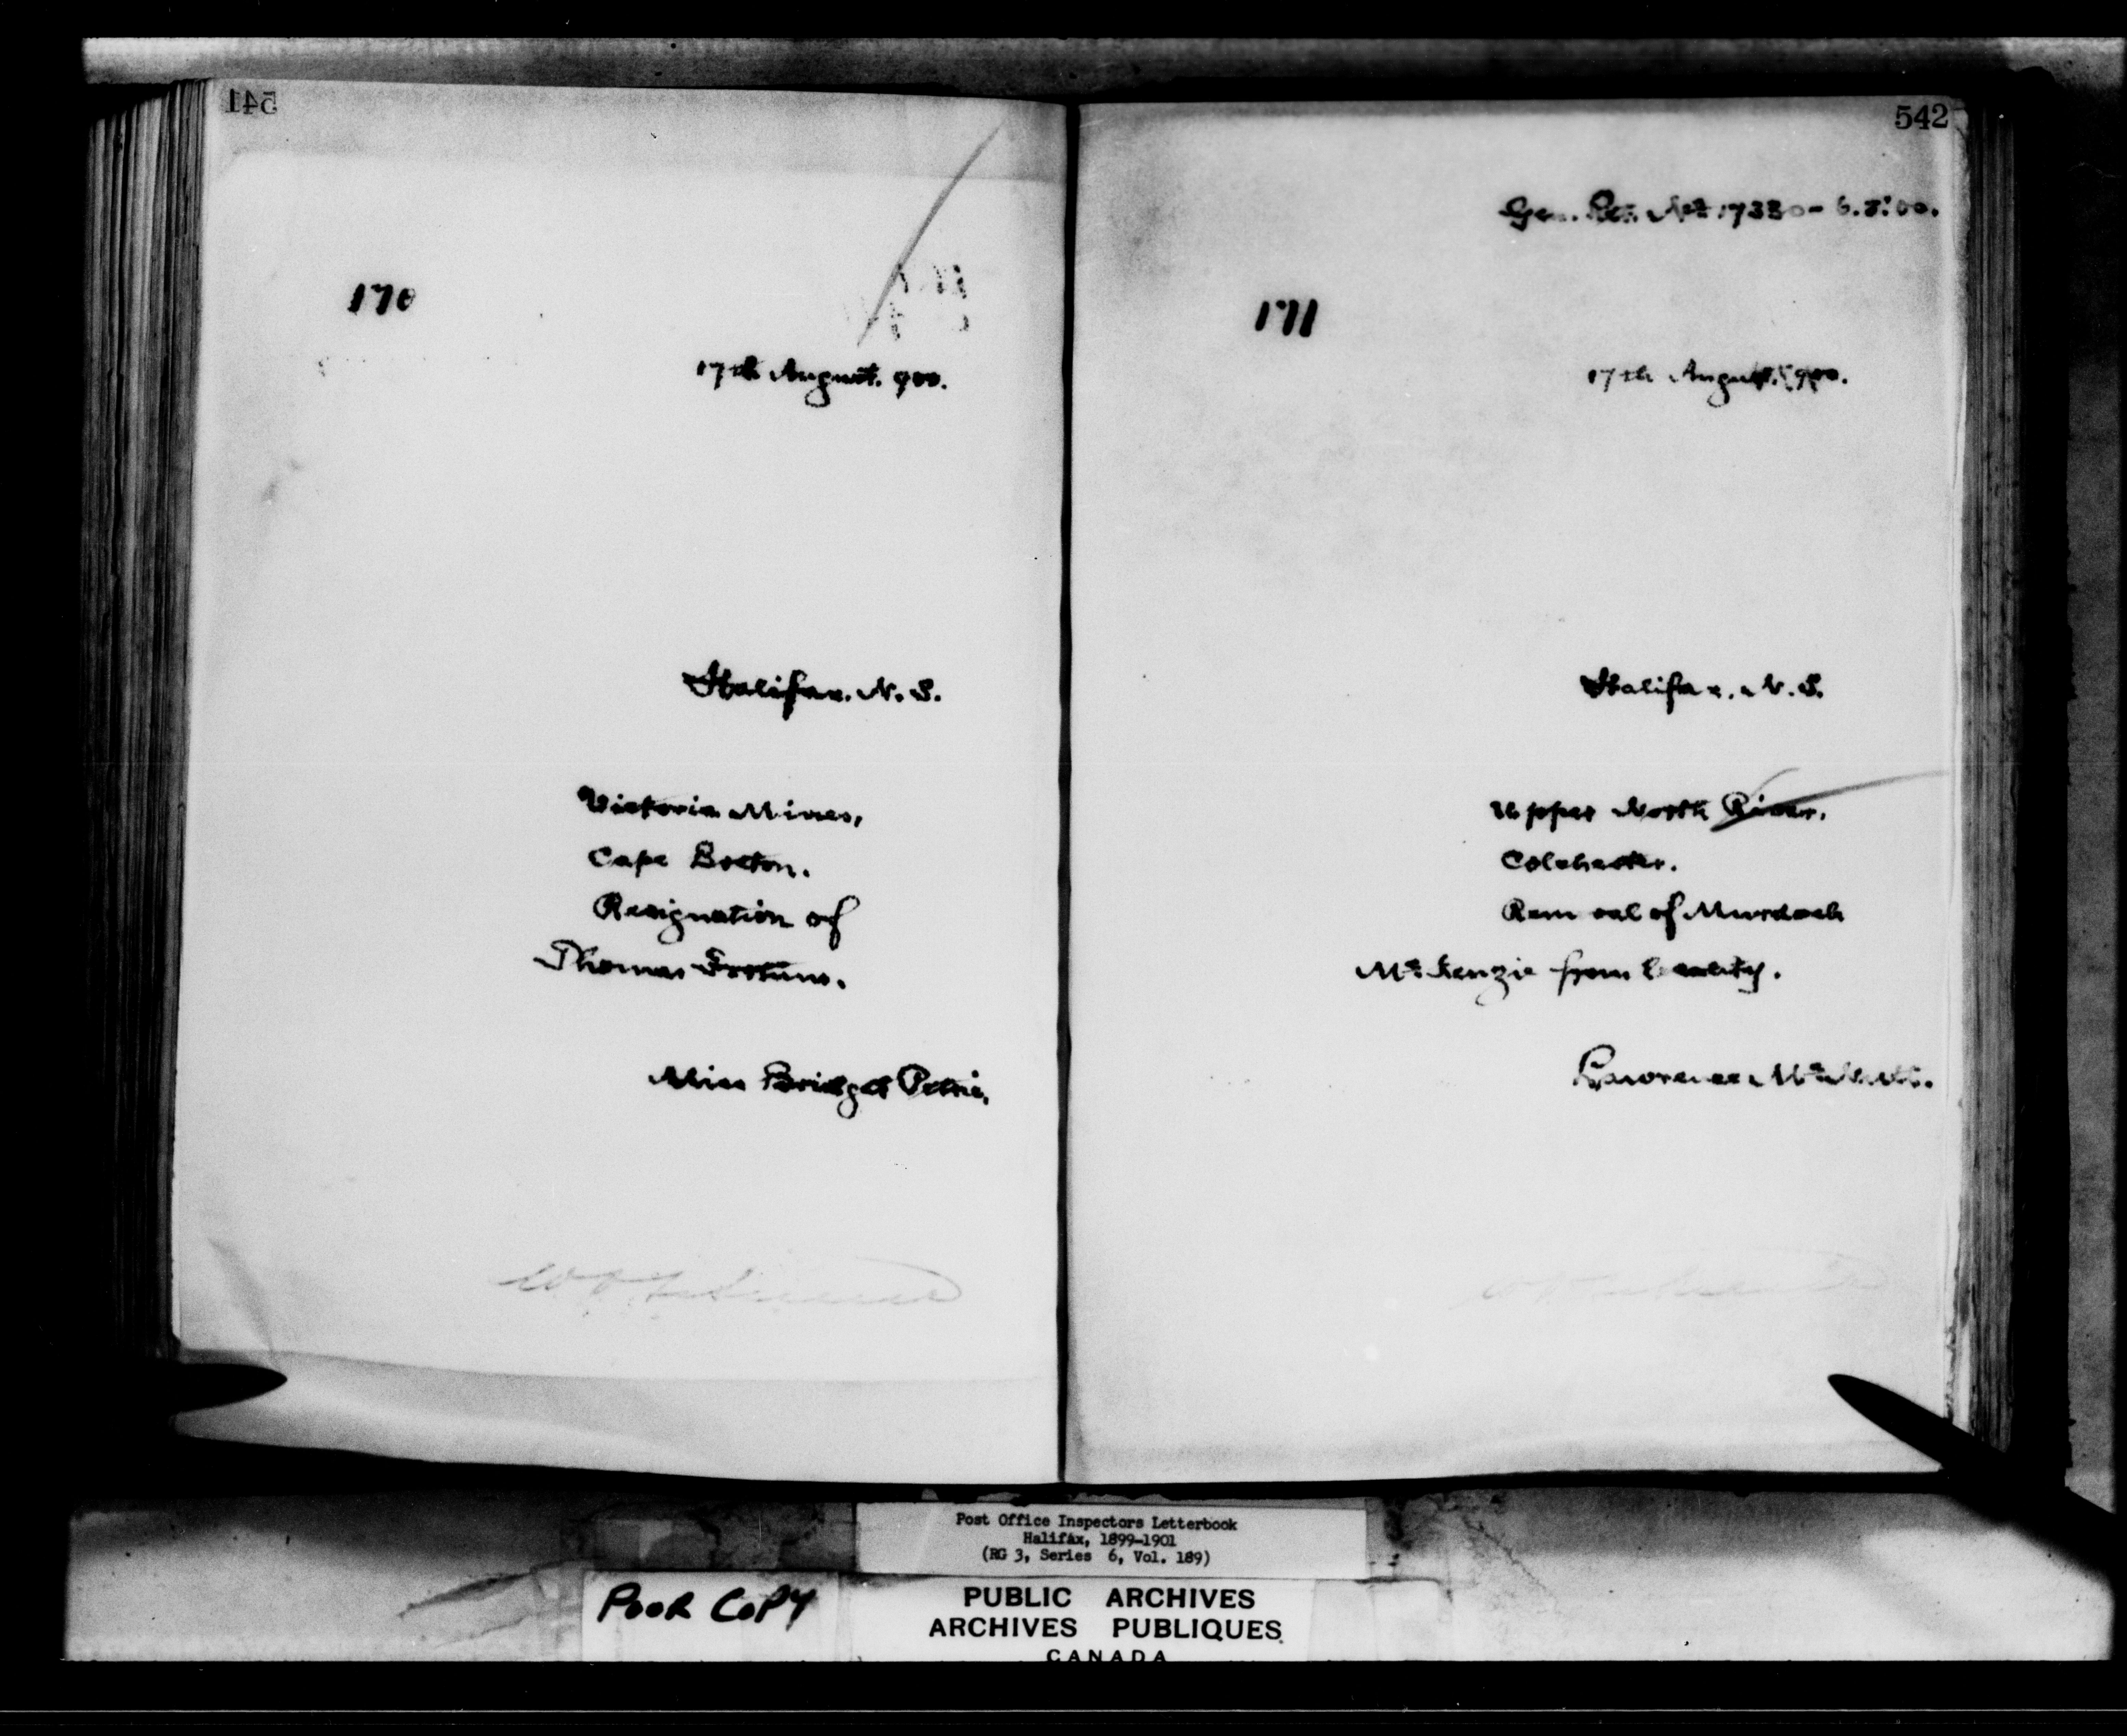 541
170
17th August. 900.
Halifax. N. S.
Victoria Mines,
Cape Breton.
Resignation of
Thomas
Miss Bridget Petrie.
542
Gen. No. 17330 - 6.8.'00.
171
17th August. 900.
Halifax. N. S.
Upper North River.
Colchester.
Rem oval of Murdoch
McKenzie from locality.
Lawrence
Post Office Inspectors Letterbook
Halifax, 1899-1901
(RG 3, Series 6, Vol. 189)
POOR COPY
PUBLIC ARCHIVES
ARCHIVES PUBLIQUES
CANADA